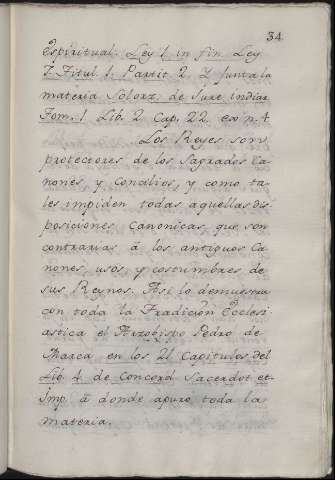 34
Espiritual: Ley 1 in fin. Ley
7. Titul 1. Partit 2. Y junta la
materia Solorz: de Jure Indiar
Tom. 1 Lib. 2 Cap. 22 ex n. 4
Los Reyes son
protectores de los Sagrados Ca
nones, y Concilios, y como ta-
les impiden todas aquellas dis
posiciones canonicas que son
contrarias á los antiguos Ca
nones, usos, y costumbres de
sus Reynos. Asi lo demuestra
con toda la Tradicion Eclesi
astica el Arzobispo Pedro de
Marca en los 21 Capitulos del
Lib. 4 de Concord Sacerdot et
Imp. á donde apuró toda la
materia.